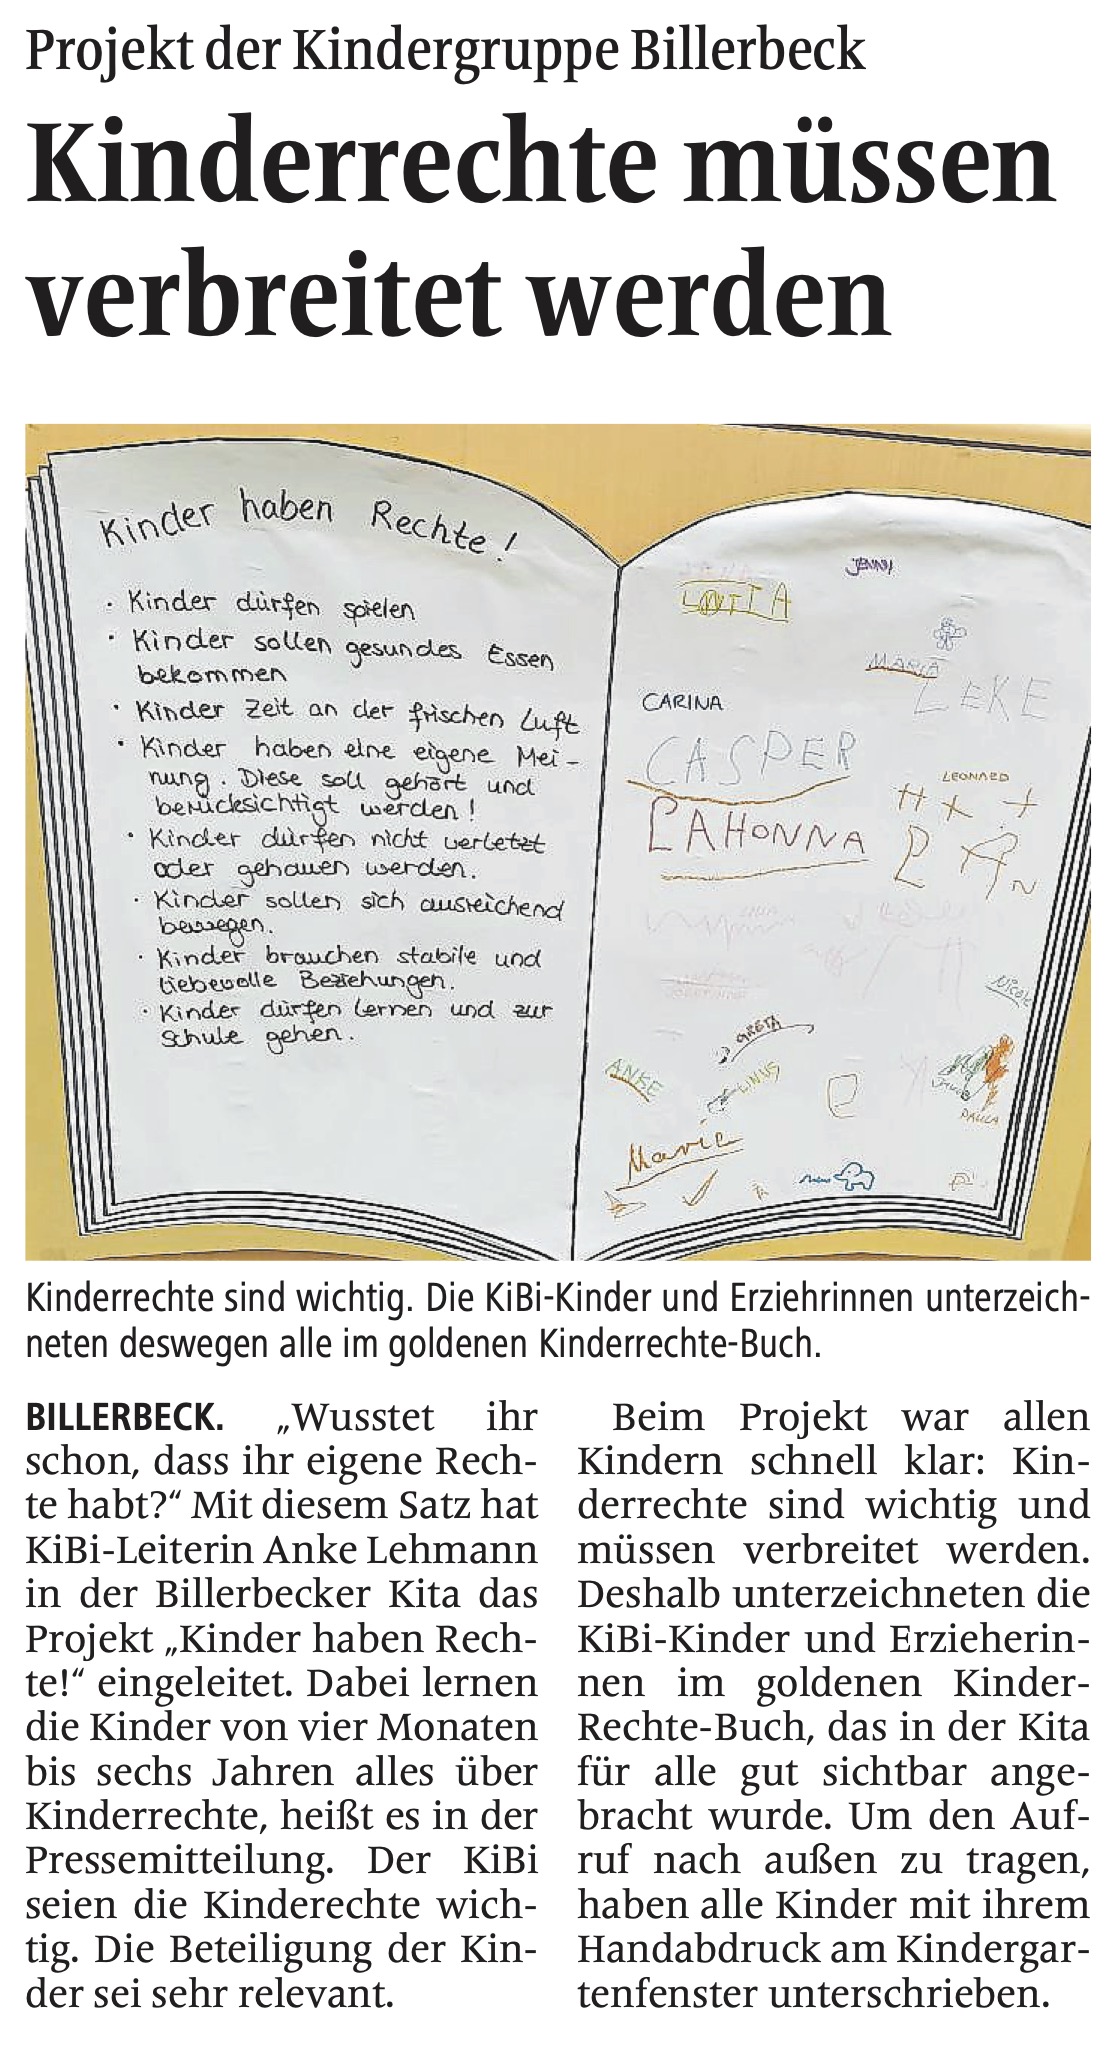 Projekt der Kindergruppe Billerbeck
Kinderrechte müssen
verbreitet werden
Kinder haben Rechte!
· Kinder dürfen spielen
· Kinder sollen gesundes Essen
bekommen
· Kinder Zeit an der frischen Luft
· Kinder haben eine eigene Mei-
nung. Diese soll gehört und
berücksichtigt werden!
· Kinder dürfen nicht verletzt
oder gehauen werden.
· Kinder sollen sich ausreichend
bewegen.
· Kinder brauchen stabile und
liebevolle Beziehungen.
· Kinder dürfen lernen und zur
Schule gehen.
JENNY
MARIA
LEKE
CARINA
CASPER
LEONARD
LAHONNA
NICOLE
GRETA
ANKE
LINUS
PAULA
Marie
Kinderrechte sind wichtig. Die KiBi-Kinder und Erziehrinnen unterzeich-
neten deswegen alle im goldenen Kinderrechte-Buch.
BILLERBECK. „Wusstet ihr
schon, dass ihr eigene Rech-
te habt?“ Mit diesem Satz hat
KiBi-Leiterin Anke Lehmann
in der Billerbecker Kita das
Projekt „Kinder haben Rech-
te!“ eingeleitet. Dabei lernen
die Kinder von vier Monaten
bis sechs Jahren alles über
Kinderrechte, heißt es in der
Pressemitteilung. Der KiBi
seien die Kinderechte wich-
tig. Die Beteiligung der Kin-
der sei sehr relevant.
Beim Projekt war allen
Kindern schnell klar: Kin-
derrechte sind wichtig und
müssen verbreitet werden.
Deshalb unterzeichneten die
KiBi-Kinder und Erzieherin-
nen im goldenen Kinder-
Rechte-Buch, das in der Kita
für alle gut sichtbar ange-
bracht wurde. Um den Auf-
ruf nach außen zu tragen,
haben alle Kinder mit ihrem
Handabdruck am Kindergar-
tenfenster unterschrieben.